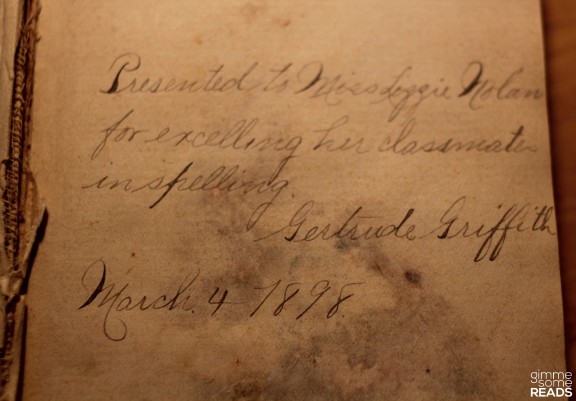 Presented to Miss Lizzie Nolan
for excelling her classmates
in spelling.
Gertrude Griffith
March. 4 1898.
gimme
some
READS